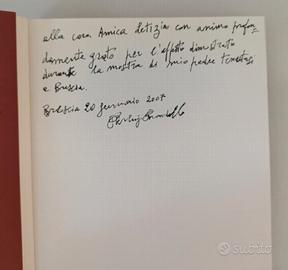 alla cara Amica Letizia con animo profon=
damente grato per l'affetto dimostrato
durante la mostra di mio padre tenutasi
a Brescia.
Brescia 20 gennaio 2007
subito